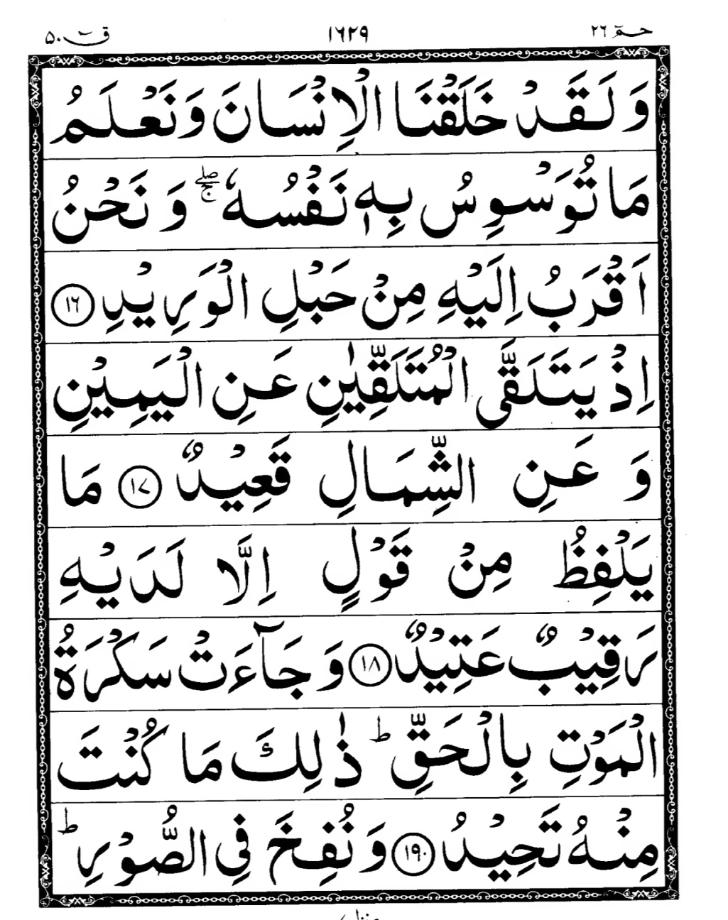 حٰمٓ ٢٦ ١٦٢٩ قٓ ٥٠
وَ لَـقَـدْ خَلَقْنَا الْاِنْسَانَ وَنَعْـلَـمُ
مَا تُوَسْوِسُ بِهٖ نَفْسُهٗ ۖۚ وَ نَحْنُ
اَقْرَبُ اِلَيْهِ مِنْ حَبْلِ الْوَرِيْدِ ١٦
اِذْ يَتَلَقَّى الْمُتَلَقِّيٰنِ عَـنِ الْيَمِيْنِ
وَ عَنِ الشِّمَالِ قَعِيْدٌ ١٧ مَا
يَلْفِظُ مِنْ قَوْلٍ اِلَّا لَدَيْهِ
رَقِيْبٌ عَتِيْدٌ ١٨ وَ جَآءَتْ سَكْرَةُ
الْمَوْتِ بِالْحَقِّ ؕ ذٰلِكَ مَا كُنْتَ
مِنْهُ تَحِيْدُ ١٩ وَ نُفِخَ فِى الصُّوْرِ ؕ